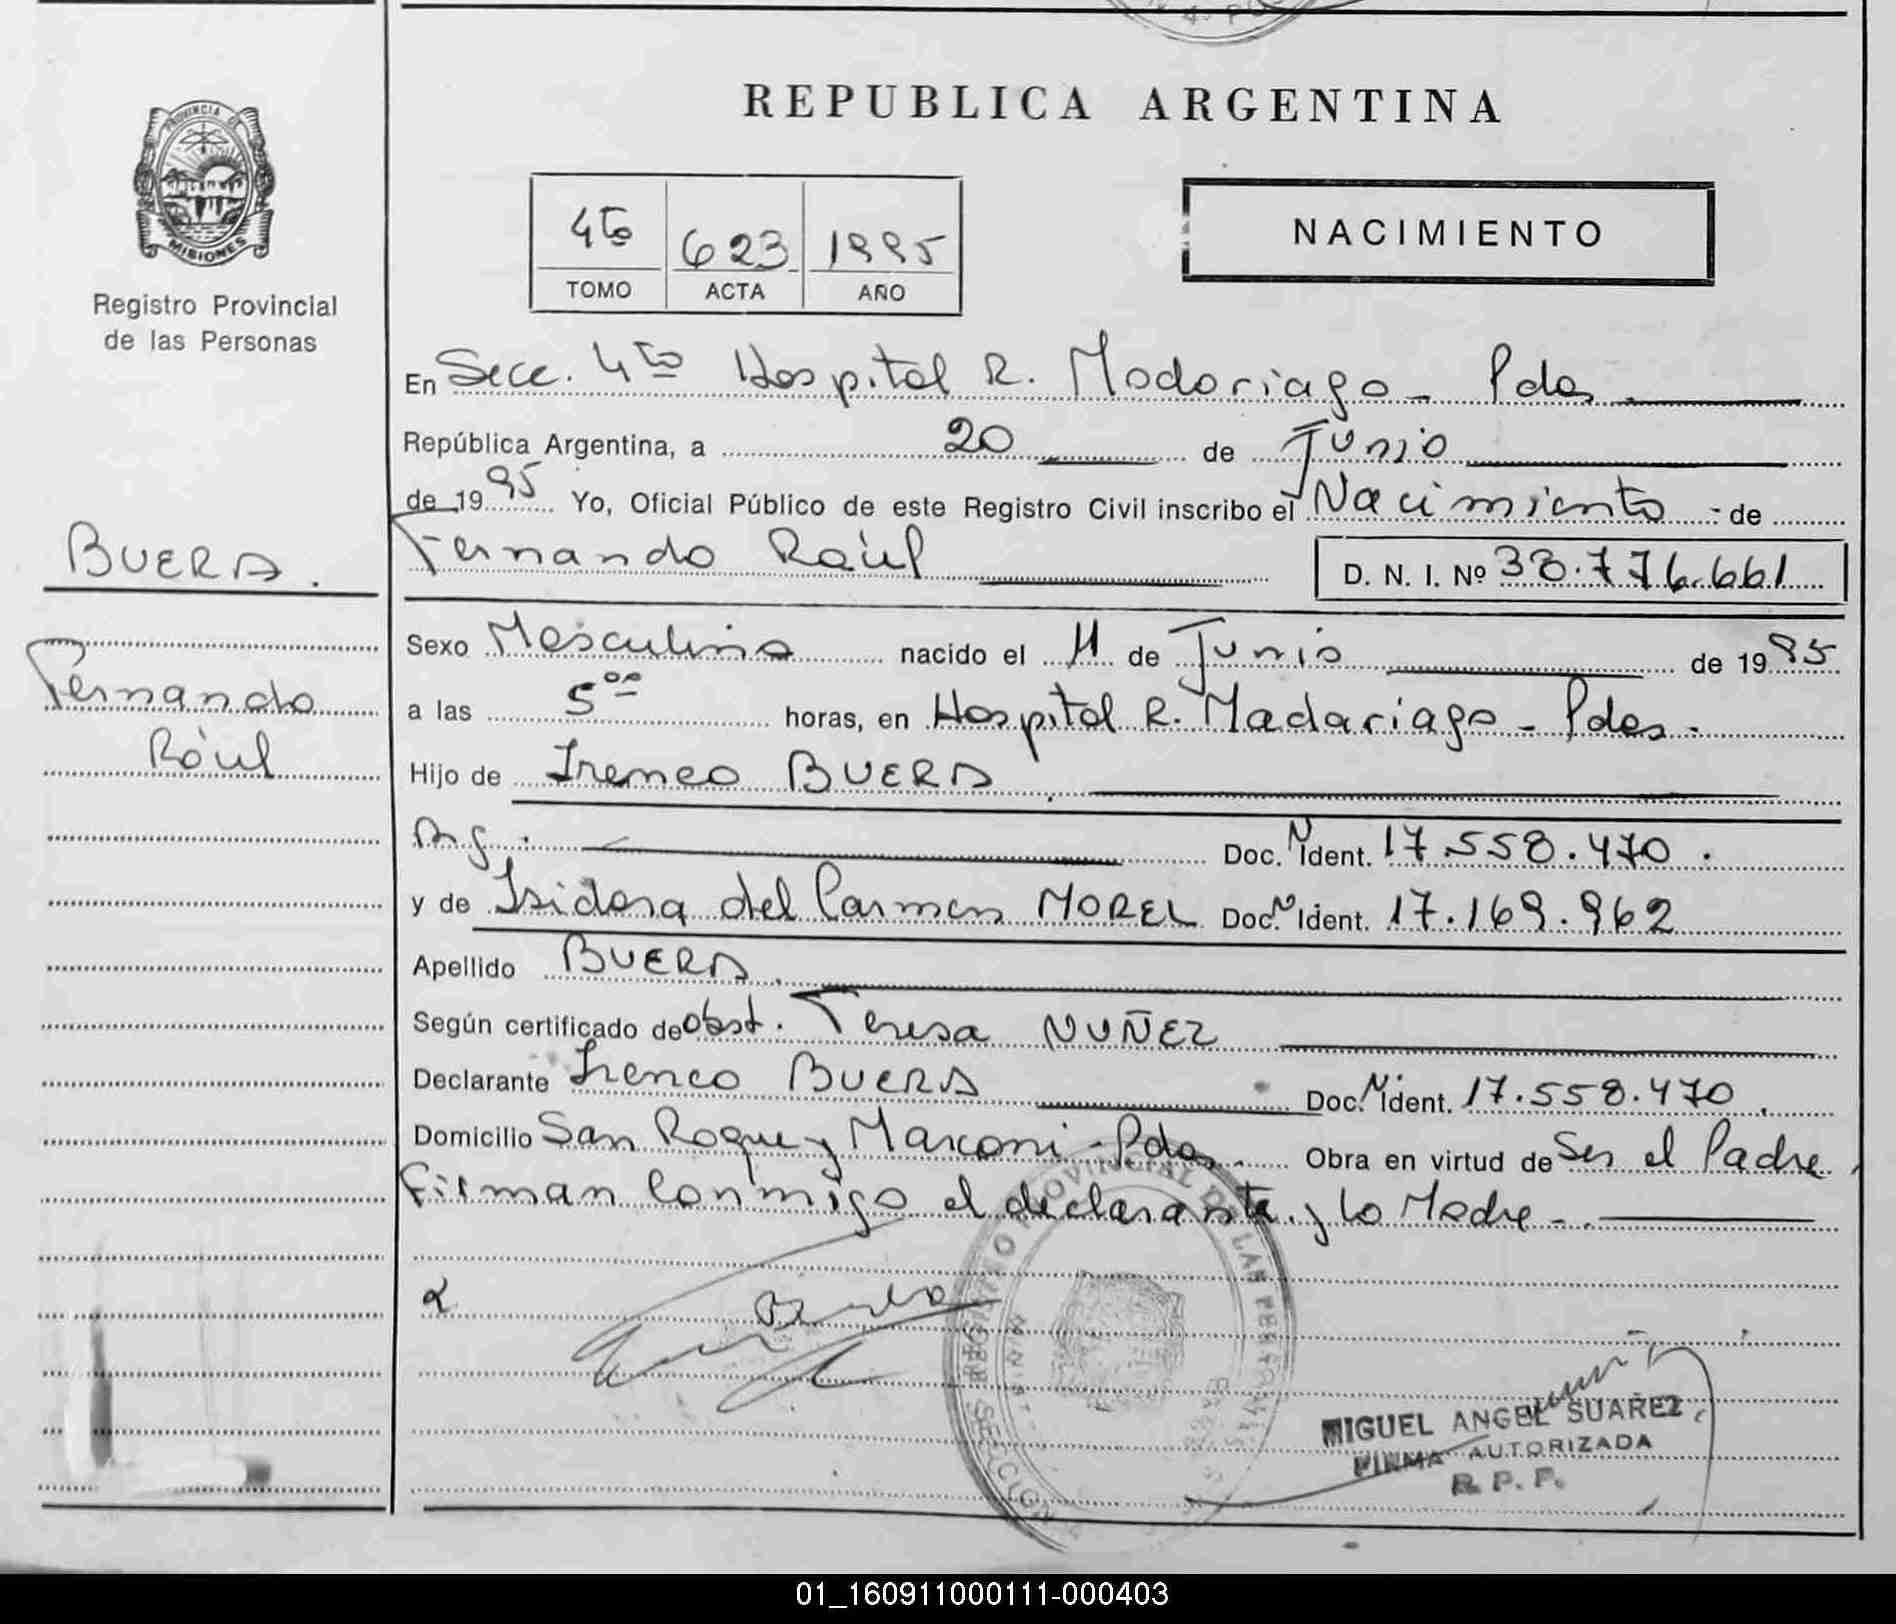 PROVINCIA DE
MISIONES
Registro Provincial
de las Personas
BUERA.
Fernando
Raúl
REPUBLICA ARGENTINA
4to 623 1995
TOMO ACTA AÑO
NACIMIENTO
En Secc. 4to Hospital R. Madariaga - Pdas
República Argentina, a 20 de Junio
de 1995 Yo, Oficial Público de este Registro Civil inscribo el Nacimiento - de
Fernando Raúl D. N. I. Nº 38.776.661
Sexo Masculino nacido el 11 de Junio de 1995
a las 5 oo horas, en Hospital R. Madariaga - Pdas -
Hijo de Ireneo BUERA
Arg. Doc. N Ident. 17.558.470.
y de Isidora del Carmen MOREL Doc. N Ident. 17.169.962
Apellido BUERA.
Según certificado de obst. Teresa NUÑEZ
Declarante Ireneo BUERA Doc. N Ident. 17.558.470.
Domicilio San Roque y Marconi - Pdas. Obra en virtud de Ser el Padre,
Firman conmigo el declarante y la Madre -
REGISTRO PROVINCIAL DE LAS PERSONAS
SECCION 4
MIGUEL ANGEL SUAREZ
FIRMA AUTORIZADA
R. P. P.
01_160911000111-000403